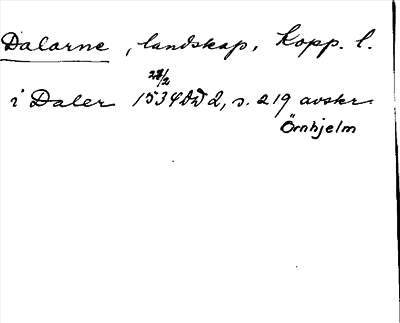 Dalarne, landskap. Kopp. l.
27/2
i Daler 1534 DD 2, s. 219 avskr.
Örnhjelm